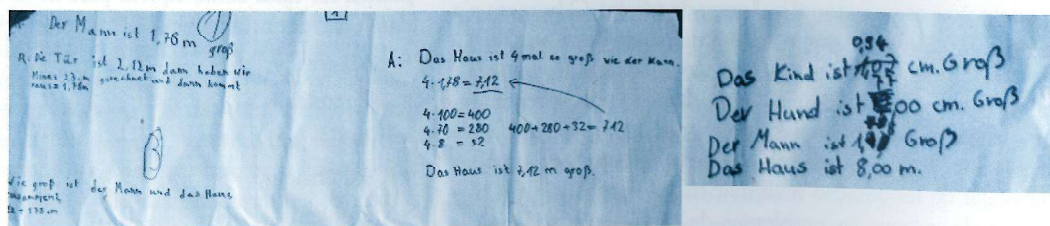 Der Mann ist 1,78 m groß
R: Die Tür ist 2,12m dann haben wir
minus gerechnet und dann kommt
raus = 1,78m
Wie groß ist der Mann und das Haus
zusammen?
A: Das Haus ist 4 mal so groß wie der Mann.
4·1,78 = 7,12
4·100 = 400
4·70 = 280 400+280+32 = 712
4·8 = 32
Das Haus ist 7,12 m groß.
0,94
Das Kind ist cm. Groß
Der Hund ist 00 cm. Groß
Der Mann ist Groß
Das Haus ist 8,00 m.